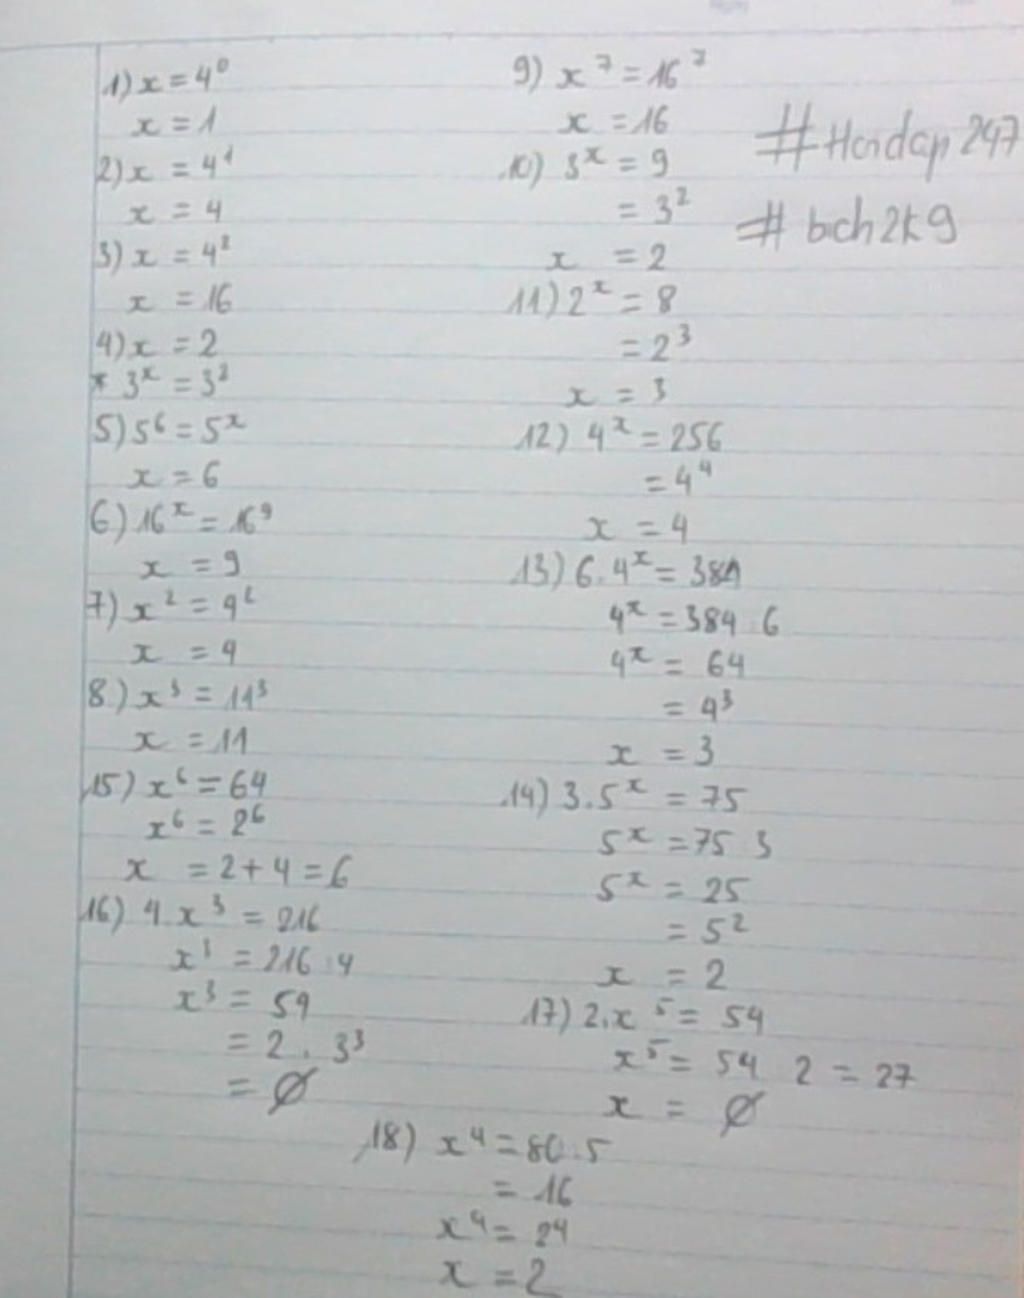 1) x = 4⁰
x = 1
2) x = 4¹
x = 4
3) x = 4²
x = 16
4) x = 2
* 3ˣ = 3²
5) 5⁶ = 5ˣ
x = 6
6) 16ˣ = 16⁹
x = 9
7) x² = 9²
x = 9
8) x³ = 11³
x = 11
15) x⁶ = 64
x⁶ = 2⁶
x = 2 + 4 = 6
16) 4. x³ = 216
x³ = 216 : 4
x³ = 54
= 2 . 3³
= ∅
9) x⁷ = 16⁷
x = 16
10) 3ˣ = 9
= 3²
x = 2
11) 2ˣ = 8
= 2³
x = 3
12) 4ˣ = 256
= 4⁴
x = 4
13) 6.4ˣ = 384
4ˣ = 384 : 6
4ˣ = 64
= 4³
x = 3
14) 3.5ˣ = 75
5ˣ = 75 3
5ˣ = 25
= 5²
x = 2
17) 2.x⁵ = 54
x⁵ = 54 2 = 27
x = ∅
18) x⁴ = 80 : 5
= 16
x⁴ = 2⁴
x = 2
#Hoidap247
#bich2k9